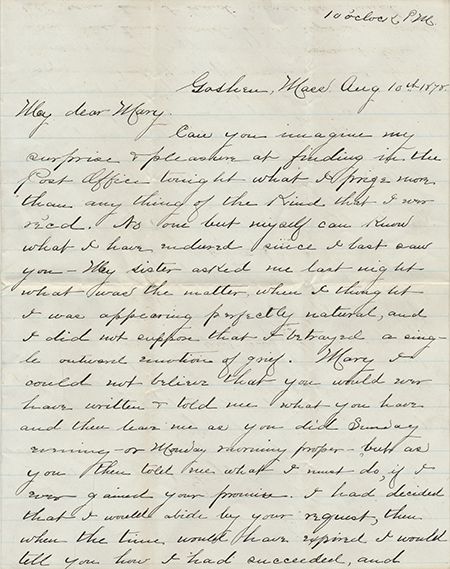 10 o'clock P.M.
Goshen, Mass. Aug 10th 1878.
My dear Mary.
Can you imagine my
surprise & pleasure at finding in the
Post Office tonight what I prize more
than any thing of the Kind that I ever
rec'd. No one but myself can know
what I have endured since I last saw
you – My sister asked me last night
what was the matter, when I thought
I was appearing perfectly natural, and
I did not suppose that I betrayed a sing-
le outward emotion of grief. Mary I
could not believe that you would ever
have written & told me what you have
and then leave me as you did Sunday
evening – or Monday morning proper – but as
you then told me what I must do, if I
ever gained your promise. I had decided
that I would abide by your request, then
when the time would have expired I would
tell you how I had succeeded, and